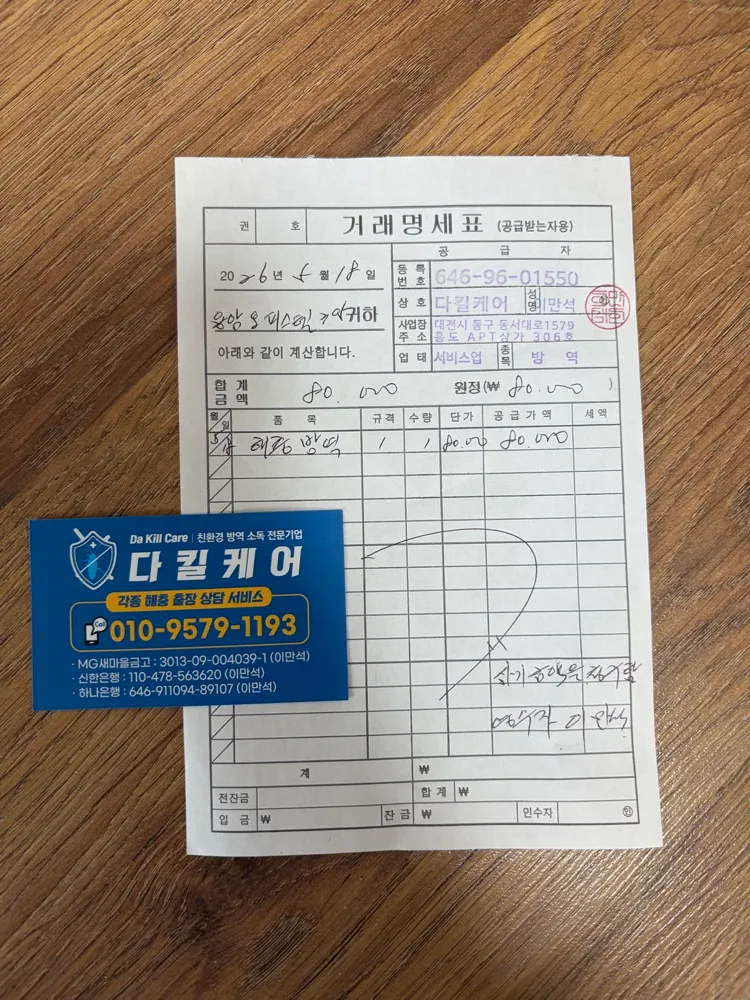 권 호 거래명세표 (공급받는자용)
2026년 5월 18일
귀하
아래와 같이 계산합니다.
공급자
등록번호 646-96-01550
상호 다킬케어 성명 이만석 ㊞
사업장주소 대전시 동구 동서대로1579
흥도 APT상가 306호
업태 서비스업 종목 방역
합계금액 80.000 원정(₩ 80.000 )
월일 품목 규격 수량 단가 공급가액 세액
5/18 방역 1 1 80.000 80.000
영수자 이만석
계 ₩
전잔금 합계 ₩
입금 ₩ 잔금 ₩ 인수자 ㊞
Da Kill Care | 친환경 방역 소독 전문기업
다킬케어
각종 해충 출장 상담 서비스
Call 010-9579-1193
· MG새마을금고 : 3013-09-004039-1 (이만석)
· 신한은행 : 110-478-563620 (이만석)
· 하나은행 : 646-911094-89107 (이만석)